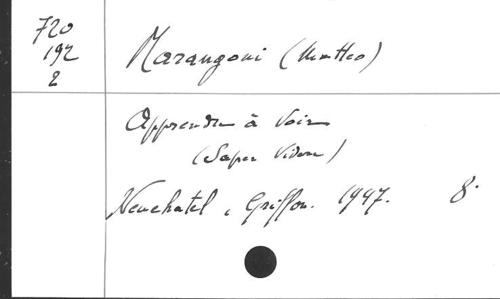 720
192
2
Marangoni (Matteo)
Apprendre à Voir
(Saper Vedere)
Neuchatel, Griffon. 1947. 8.